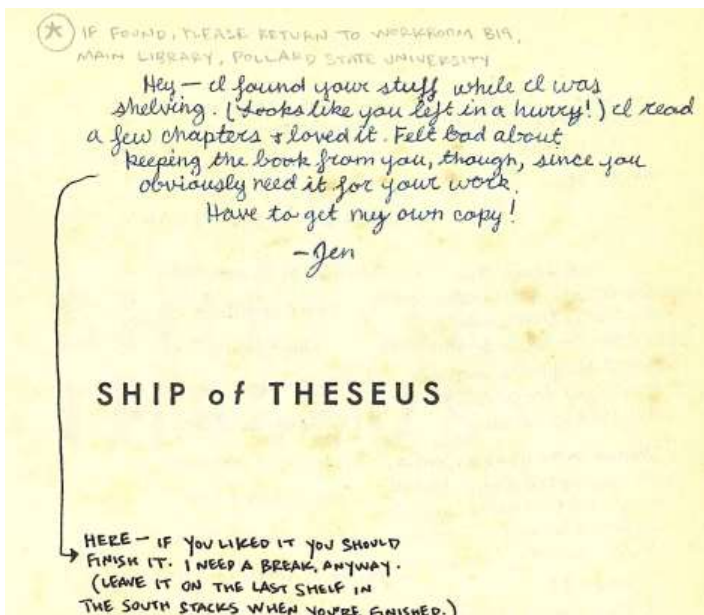 * IF FOUND, PLEASE RETURN TO WORKROOM B19,
MAIN LIBRARY, POLLARD STATE UNIVERSITY
Hey — I found your stuff while I was
shelving. (Looks like you left in a hurry!) I read
a few chapters + loved it. Felt bad about
keeping the book from you, though, since you
obviously need it for your work.
Have to get my own copy!
-Jen
SHIP of THESEUS
HERE — IF YOU LIKED IT YOU SHOULD
FINISH IT. I NEED A BREAK, ANYWAY.
(LEAVE IT ON THE LAST SHELF IN
THE SOUTH STACKS WHEN YOU'RE FINISHED.)